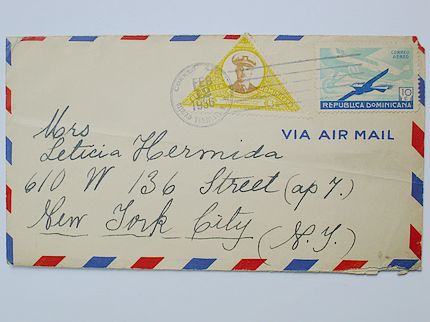 FEB
1936
CORREO
AEREO
10
REPUBLICA DOMINICANA
VIA AIR MAIL
Mrs
Leticia Hermida
610 W 136 Street (ap 7.)
New York City (N.Y.)